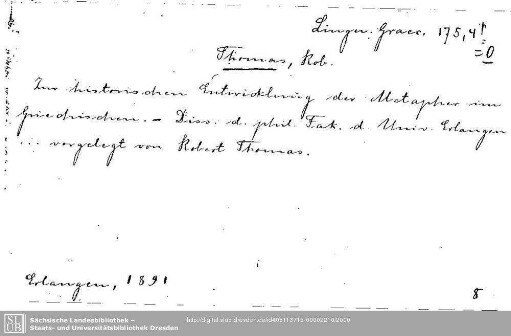 Lingu. Graec. 175,4
= 0
Thomas, Rob.
Zur historischen Entwicklung der Metapher im
Griechischen. - Diss. d. phil. Fak. d. Univ. Erlangen
... vorgelegt von Robert Thomas.
Erlangen, 1891
8
SLUB
Sächsische Landesbibliothek –
Staats- und Universitätsbibliothek Dresden